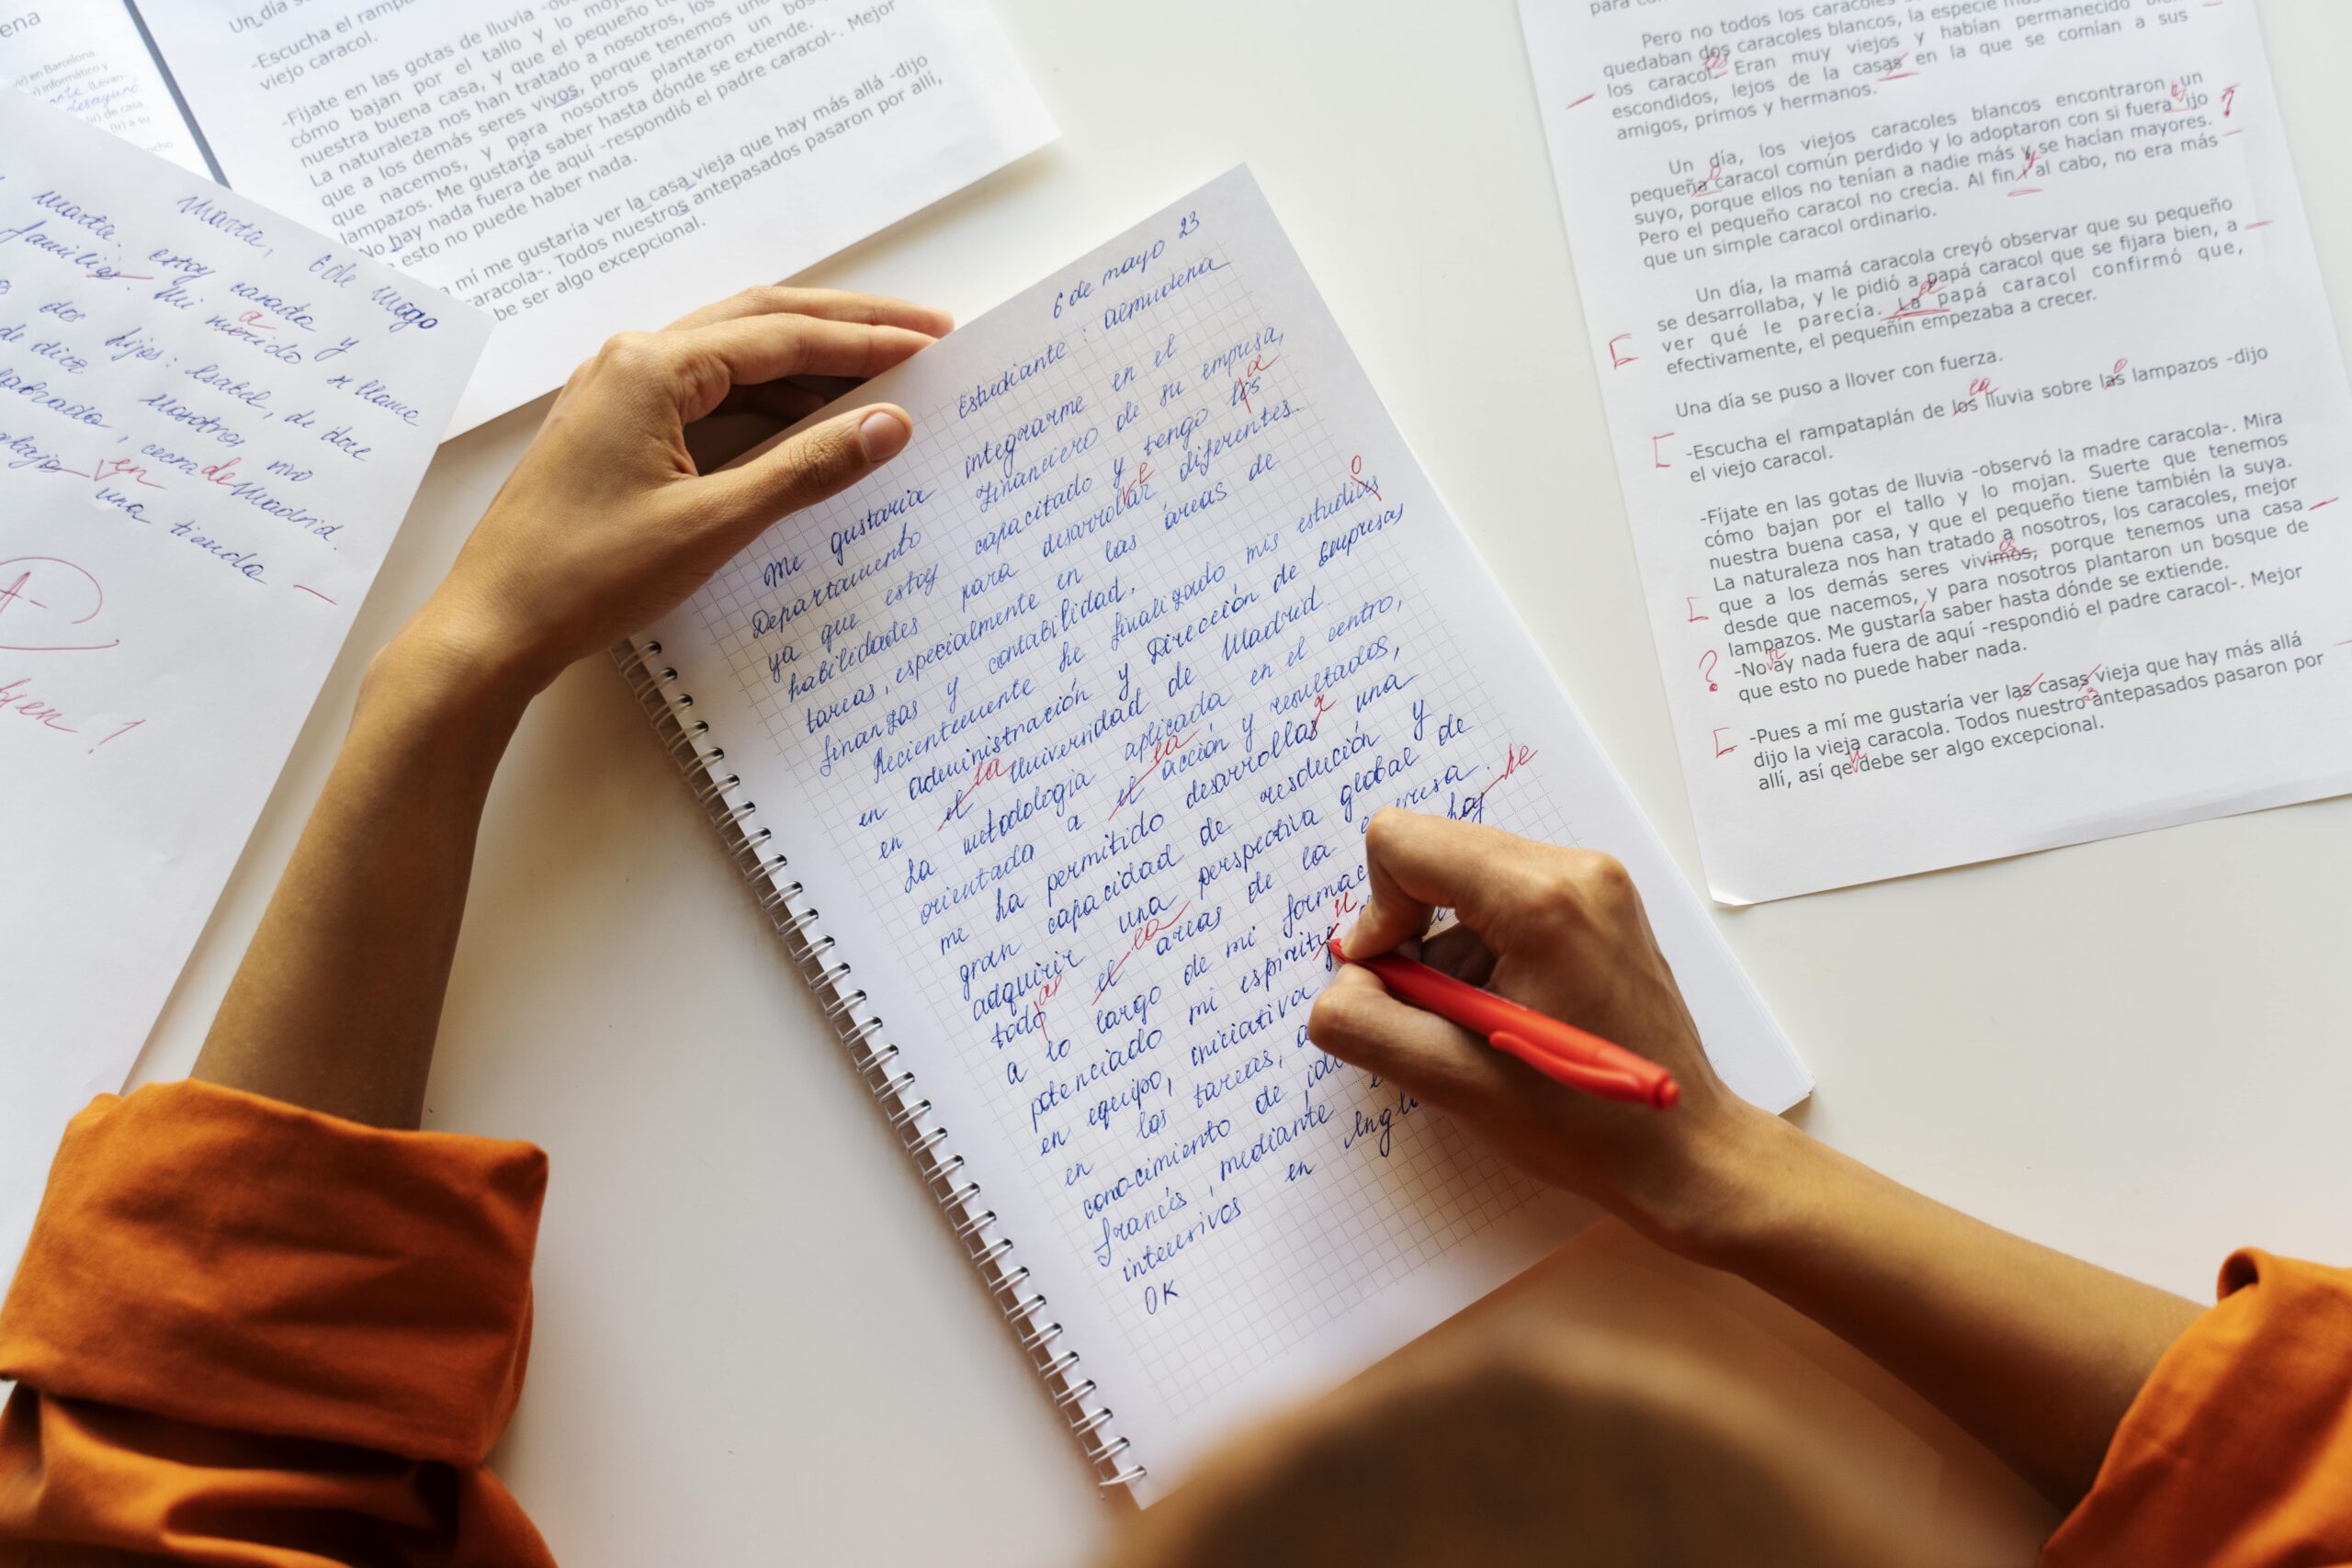 ena
en Barcelona
informático y
desayuno
de casa
a su
Un día
-Escucha el
viejo caracol.
-Fíjate en las gotas de lluvia
cómo bajan por el tallo y lo
nuestra buena casa, y que el pequeño
La naturaleza nos han tratado a nosotros, los
que a los demás seres vivos, porque tenemos una
que nacemos, y para nosotros plantaron un
lampazos. Me gustaría saber hasta dónde se extiende.
No hay nada fuera de aquí -respondió el padre caracol-. Mejor
esto no puede haber nada.
a mí me gustaría ver la casa vieja que hay más allá -dijo
caracola-. Todos nuestros antepasados pasaron por allí,
be ser algo excepcional.
Marta, 6 de mayo
Marta. estoy casada y
familiar. Mi
a
se llama
dos hijos: Isabel, de doce
de diez
nosotros vivo
cerca de Madrid.
en una tienda
A-
bien!
6 de mayo 23
Estudiante: Almudena
Me gustaria integrarme en el
Departamento Financiero de su empresa,
ya que estoy capacitado y tengo los
a
habilidades para desarrollar diferentes
e
tareas, especialmente en las áreas de
finanzas y contabilidad.
Recientemente he finalizado mis estudios
o
en administración y Dirección de Empresas
en el Universidad de Madrid.
la
La metodologia aplicada en el centro,
orientada a el acción y resultados,
la
me ha permitido desarrollas una
r
gran capacidad de resolución y
adquirir una perspectiva global de
todo el areas de la empresa.
as
la
a lo largo de mi
he
potenciado mi
u
en equipo, iniciativa
en las tareas,
conocimiento de
francés, mediante
intensivos en
OK
Pero no todos los caracoles
quedaban dos caracoles blancos, la especie
os
los caracol. Eran muy viejos y habían permanecido
escondidos, lejos de la casas en la que se comían a sus
amigos, primos y hermanos.
Un día, los viejos caracoles blancos encontraron un
pequeña caracol común perdido y lo adoptaron con si fuera ijo
o
?
suyo, porque ellos no tenían a nadie más y se hacían mayores.
Pero el pequeño caracol no crecía. Al fin y al cabo, no era más
que un simple caracol ordinario.
Un día, la mamá caracola creyó observar que su pequeño
se desarrollaba, y le pidió a papá caracol que se fijara bien, a
ver qué le parecía. La papá caracol confirmó que,
efectivamente, el pequeñín empezaba a crecer.
Una día se puso a llover con fuerza.
-Escucha el rampataplán de los lluvia sobre las lampazos -dijo
la
o
el viejo caracol.
-Fíjate en las gotas de lluvia -observó la madre caracola-. Mira
cómo bajan por el tallo y lo mojan. Suerte que tenemos
nuestra buena casa, y que el pequeño tiene también la suya.
La naturaleza nos han tratado a nosotros, los caracoles, mejor
que a los demás seres vivimos, porque tenemos una casa
os
desde que nacemos, y para nosotros plantaron un bosque de
lampazos. Me gustaría saber hasta dónde se extiende.
?
-No ay nada fuera de aquí -respondió el padre caracol-. Mejor
que esto no puede haber nada.
-Pues a mí me gustaría ver las casas vieja que hay más allá
dijo la vieja caracola. Todos nuestro antepasados pasaron por
s
allí, así qe debe ser algo excepcional.